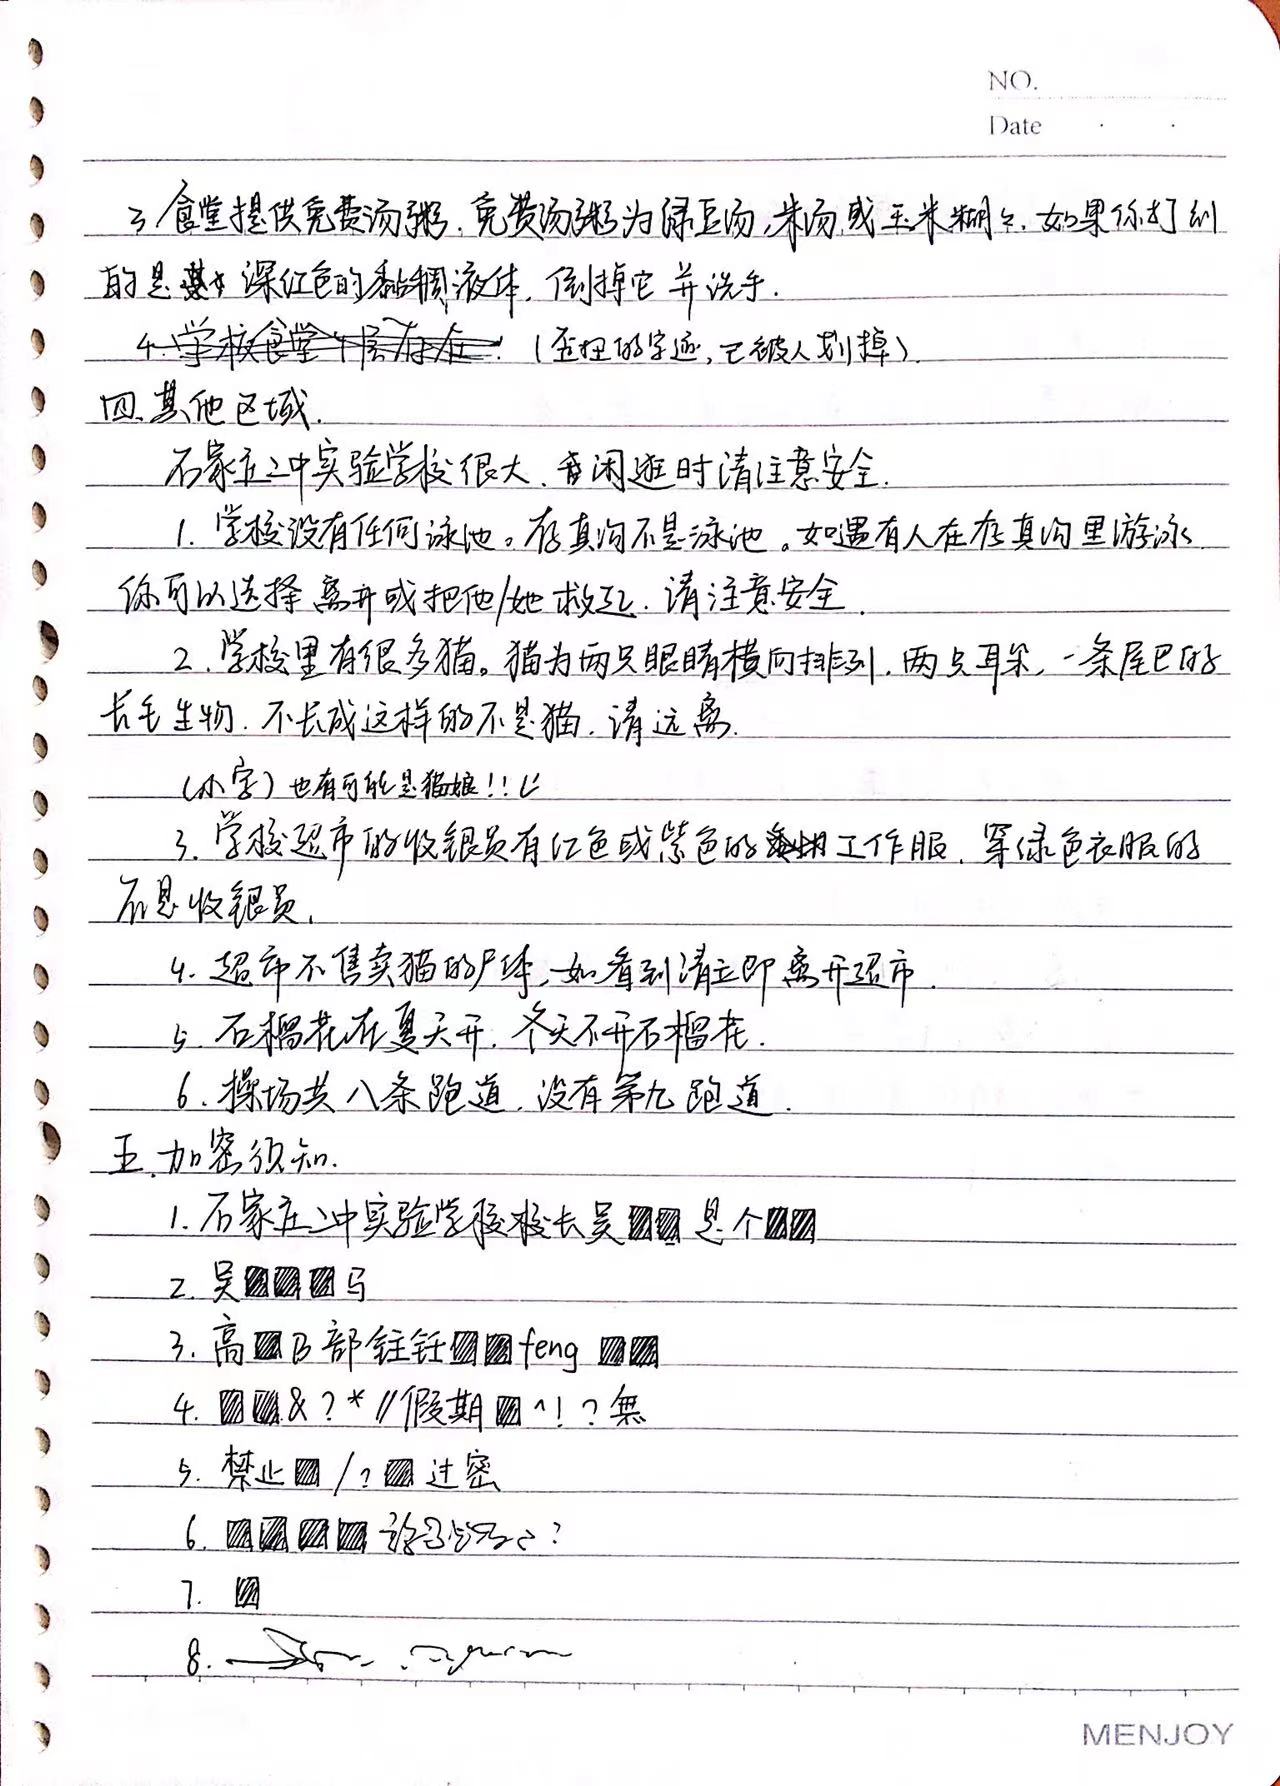 NO.
Date
3 食堂提供免费汤粥，免费汤粥为绿豆汤，米汤，或玉米糊々，如果你打到
的是 深红色的黏稠液体，倒掉它并洗手.
4. 学校食堂 存在 （歪扭的字迹，已被人划掉）.
四、其他区域.
石家庄二中实验学校很大，闲逛时请注意安全.
1. 学校没有任何泳池。存真沟不是泳池。如遇有人在存真沟里游泳
你可以选择离开或把他/她救起，请注意安全.
2. 学校里有很多猫。猫为两只眼睛横向排列，两只耳朵，一条尾巴的
长毛生物，不长成这样的不是猫，请远离.
（小字）也有可能是猫娘！！
3. 学校超市的收银员有红色或紫色的 工作服，穿绿色衣服的
不是收银员.
4. 超市不售卖猫的尸体，如看到请立即离开超市.
5. 石榴花在夏天开，冬天不开石榴花.
6. 操场共八条跑道，没有第九跑道.
五、加密须知.
1. 石家庄二中实验学校校长吴 是个
2. 吴 马
3. 高 部 feng
4. &?*//假期 ^!?無
5. 禁止 /? 过密
6. ?
7.
8.
MENJOY